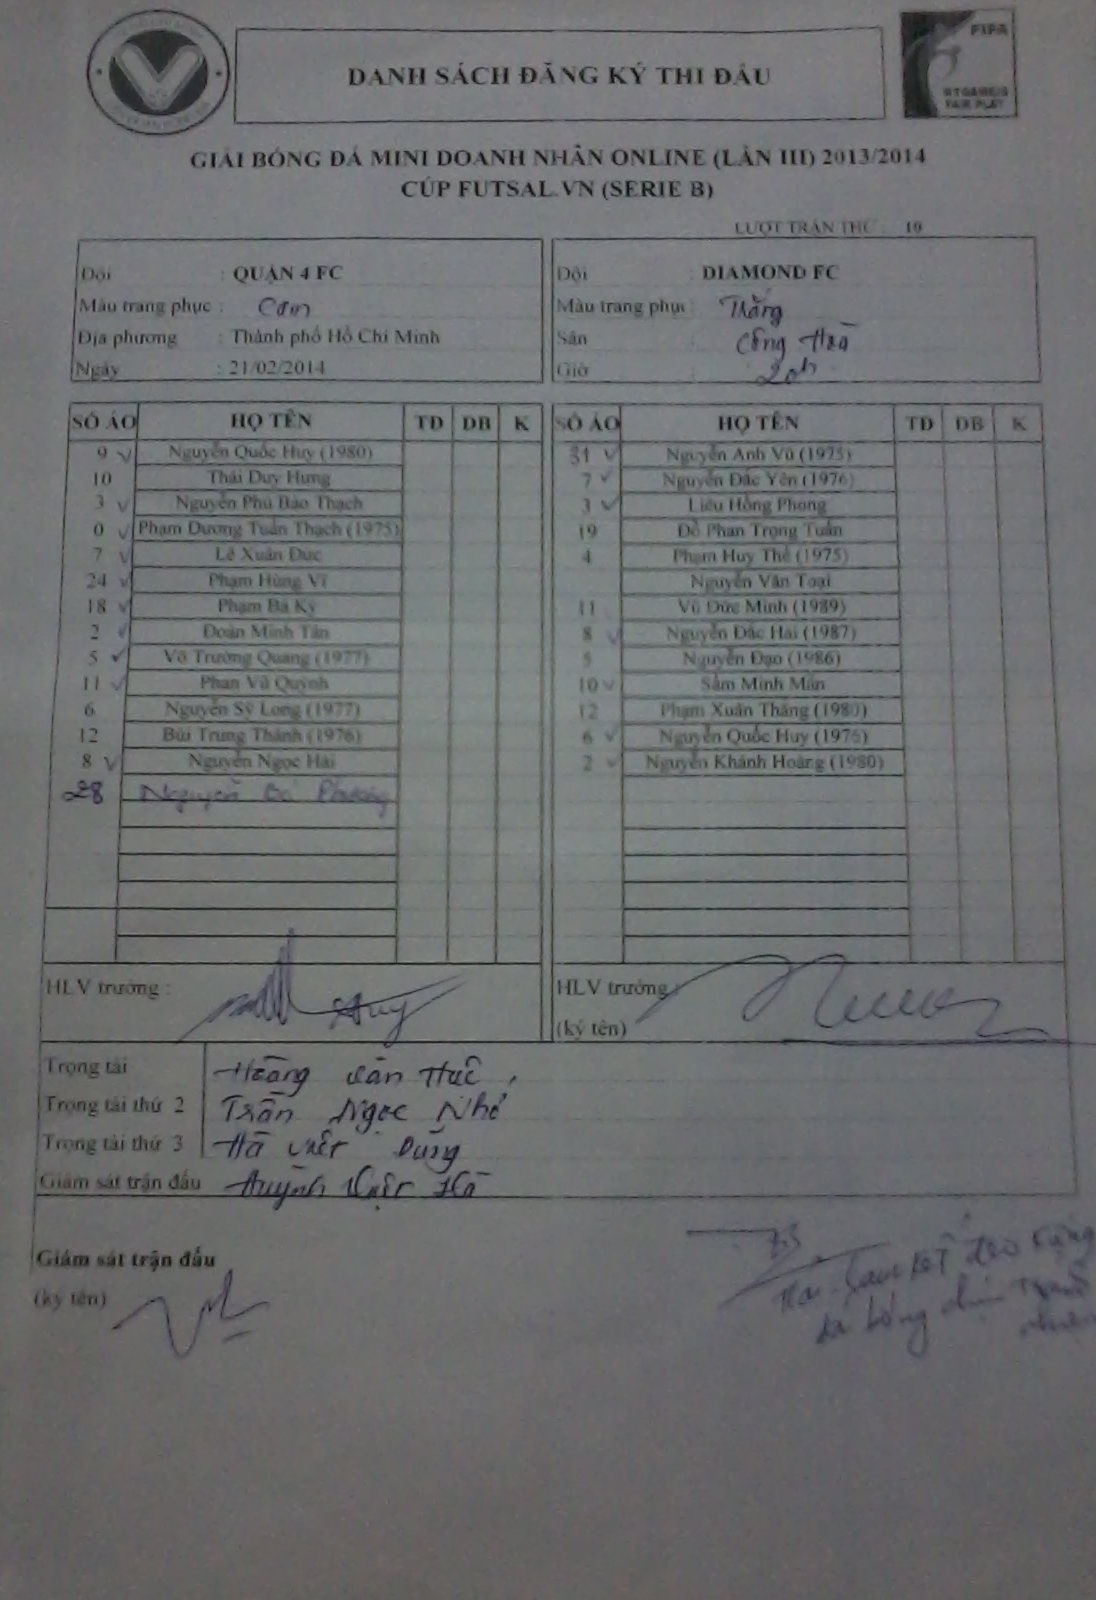 DANH SÁCH ĐĂNG KÝ THI ĐẤU
FIFA
FAIR PLAY
GIẢI BÓNG ĐÁ MINI DOANH NHÂN ONLINE (LẦN III) 2013/2014
CÚP FUTSAL.VN (SERIE B)
LƯỢT TRẬN THỨ : 10
Đội : QUẬN 4 FC
Màu trang phục : Cam
Địa phương : Thành phố Hồ Chí Minh
Ngày : 21/02/2014
Đội : DIAMOND FC
Màu trang phục : Trắng
Sân Cộng Hòa
Giờ : 20h
SỐ ÁO HỌ TÊN TĐ DB K
9 Nguyễn Quốc Huy (1980)
10 Thái Duy Hưng
3 Nguyễn Phú Bảo Thạch
0 Phạm Dương Tuấn Thạch (1975)
7 Lê Xuân Đức
24 Phạm Hùng Vĩ
18 Phạm Bá Kỳ
2 Đoàn Minh Tân
5 Võ Trường Quang (1977)
11 Phan Vũ Quỳnh
6 Nguyễn Sỹ Long (1977)
12 Bùi Trung Thành (1976)
8 Nguyễn Ngọc Hải
28 Nguyễn Bá Phương
SỐ ÁO HỌ TÊN TĐ DB K
31 Nguyễn Anh Vũ (1975)
7 Nguyễn Đắc Yên (1976)
3 Liêu Hồng Phong
19 Đỗ Phan Trọng Tuấn
4 Phạm Huy Thế (1975)
Nguyễn Văn Toại
11 Vũ Đức Minh (1989)
8 Nguyễn Đắc Hải (1987)
5 Nguyễn Đạo (1986)
10 Sầm Minh Mẫn
12 Phạm Xuân Thăng (1980)
6 Nguyễn Quốc Huy (1976)
2 Nguyễn Khánh Hoàng (1980)
HLV trưởng :
Huy
HLV trưởng :
(ký tên)
Trọng tài Hoàng Văn Huê
Trọng tài thứ 2 Trần Ngọc Nhớ
Trọng tài thứ 3 Hà Việt Dũng
Giám sát trận đấu Huỳnh Việt Hà
Giám sát trận đấu
(ký tên)